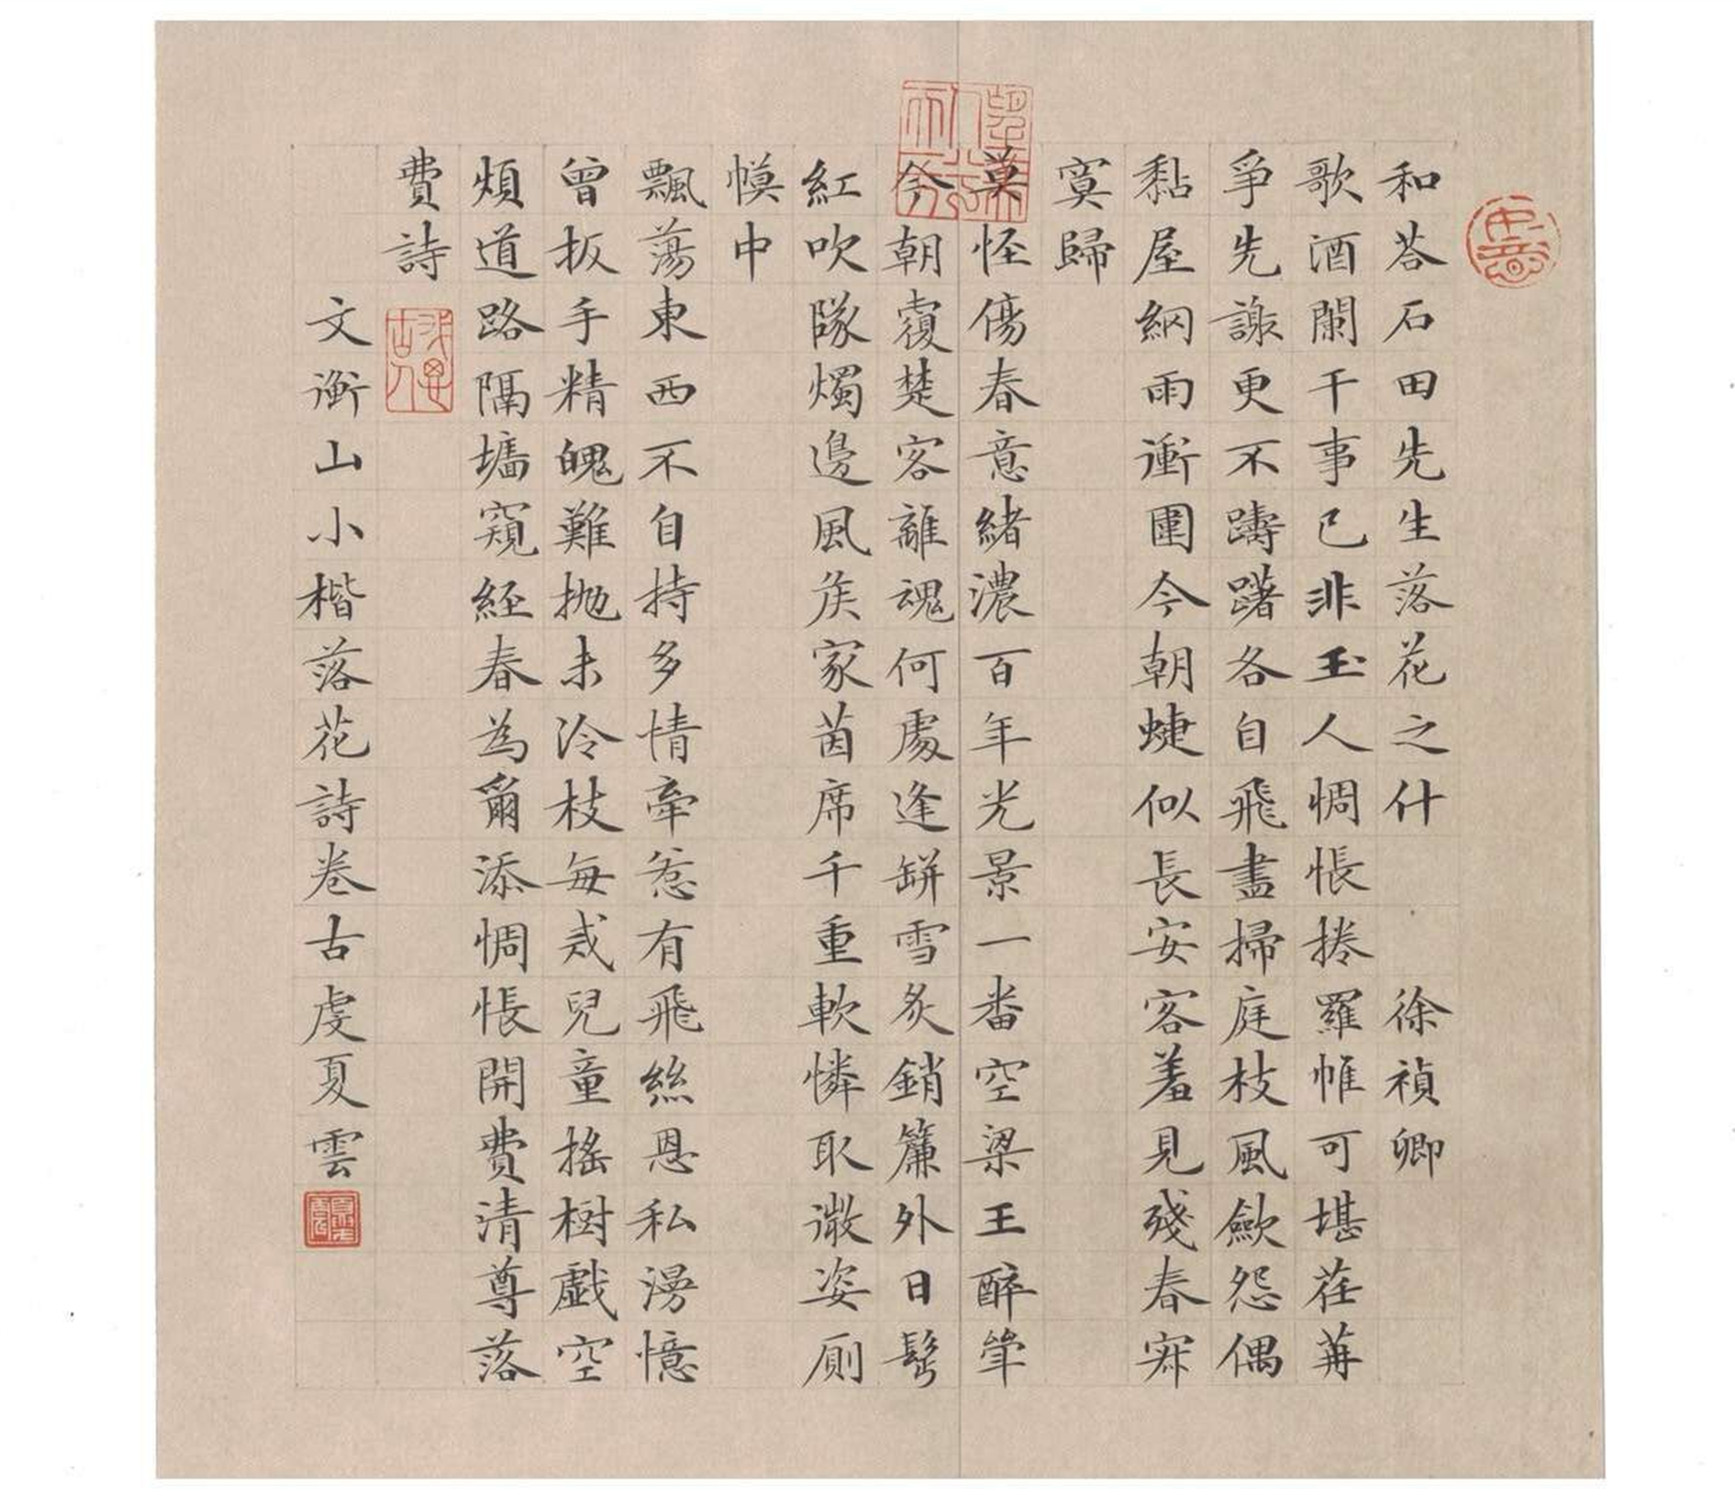 和荅石田先生落花之什 徐禎卿
歌酒闌干事已非玉人惆悵捲羅帷可堪荏苒
爭先謝更不躊躇各自飛盡掃庭枝風歛怨偶
黏屋網雨衝圍今朝蜨似長安客羞見殘春寂
寞歸
莫怪傷春意緒濃百年光景一番空梁王醉
今朝覆楚客離魂何處逢缾雪炙銷簾外日髩
紅吹隊燭邊風矦家茵席千重軟憐取微姿廁
幙中
飄蕩東西不自持多情牽惹有飛絲恩私漫憶
曾扳手精魄難拋未冷枝每戒兒童搖樹戲空
煩道路隔墻窺経春為爾添惆悵開費清尊落
費詩
文衡山小楷落花詩卷古虔夏雲